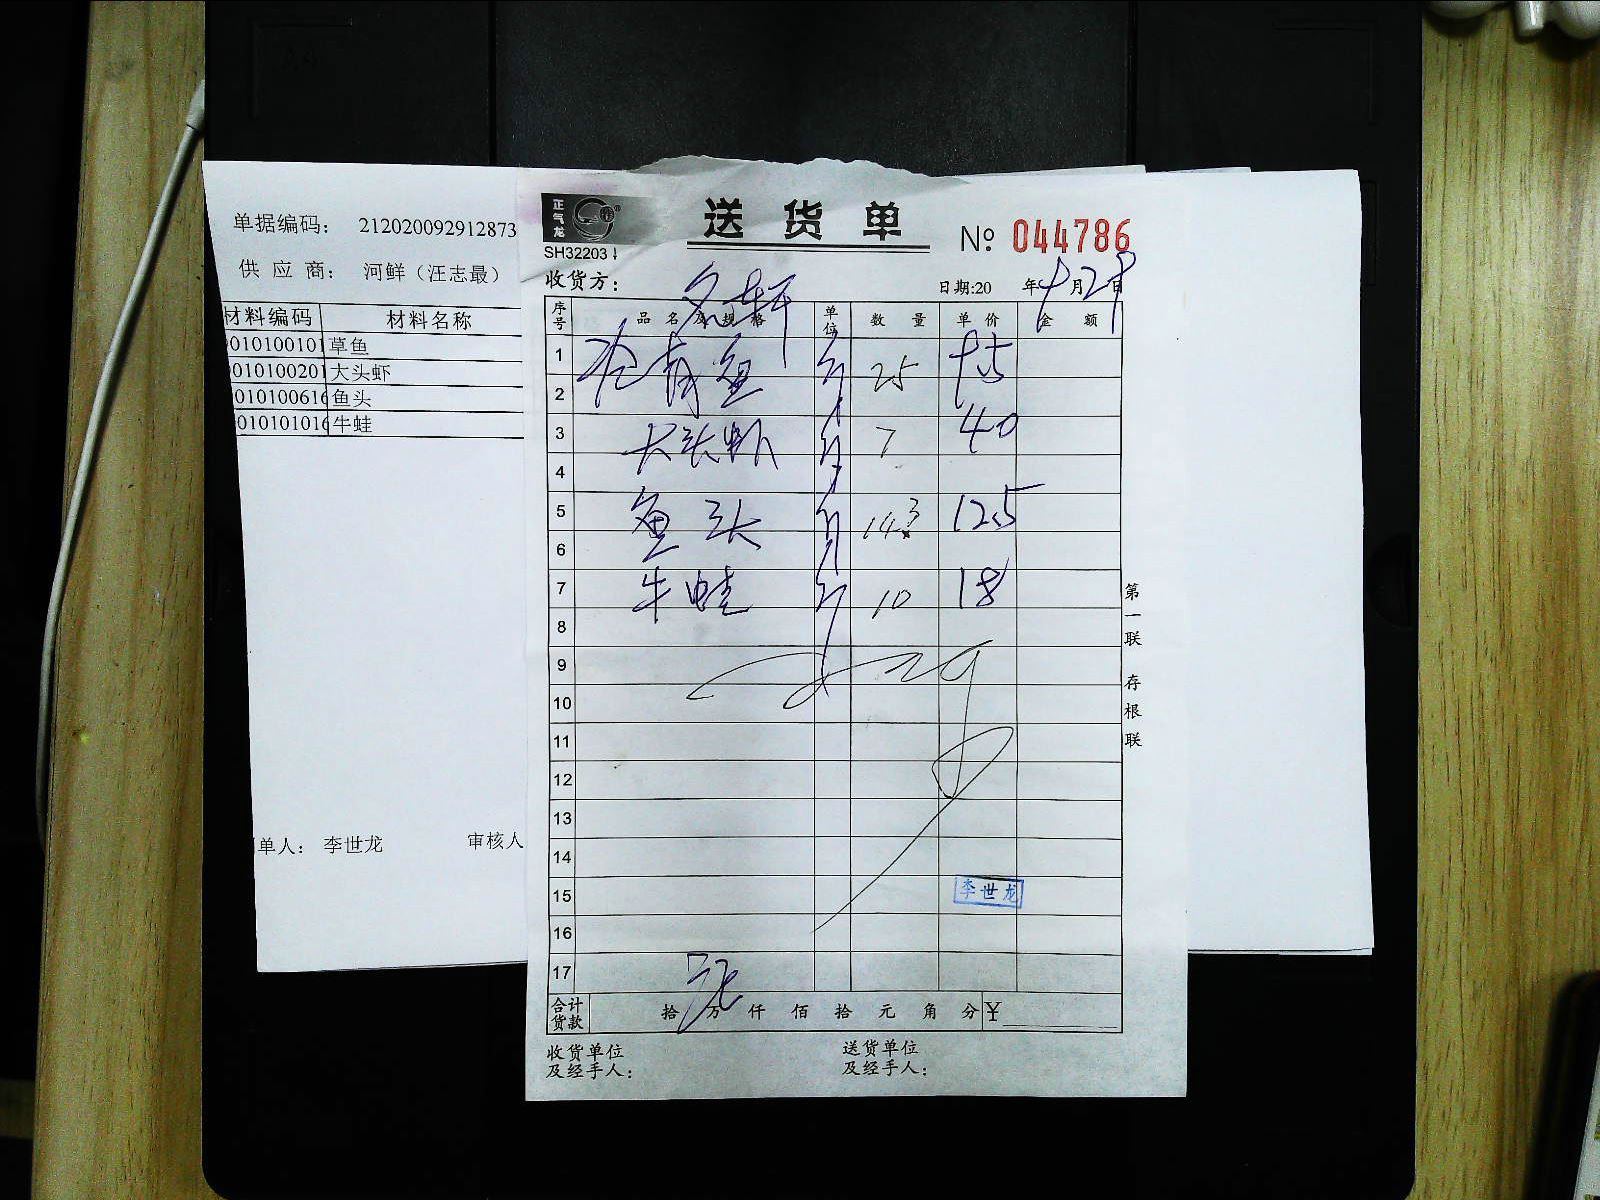 单据编码： 212020092912873
供 应 商： 河鲜（汪志最）
材料编码 材料名称
010100101 草鱼
010100201 大头虾
010100616 鱼头
010101016 牛蛙
单人： 李世龙 审核人
正气龙
SH32203
送 货 单
№ 044786
收货方：
日期:20 年9月29日
序号 品名及规格 单位 数量 单价 金额
1 鱼 斤 25
2
3 大头虾 斤 7 40
4
5 鱼头 斤 14.3 12.5
6
7 牛蛙 斤 10 18
8
9
10
11
12
13
14
15 李世龙
16
17
合计货款 拾 万 仟 佰 拾 元 角 分 ¥
收货单位及经手人：
送货单位及经手人：
第一联 存根联